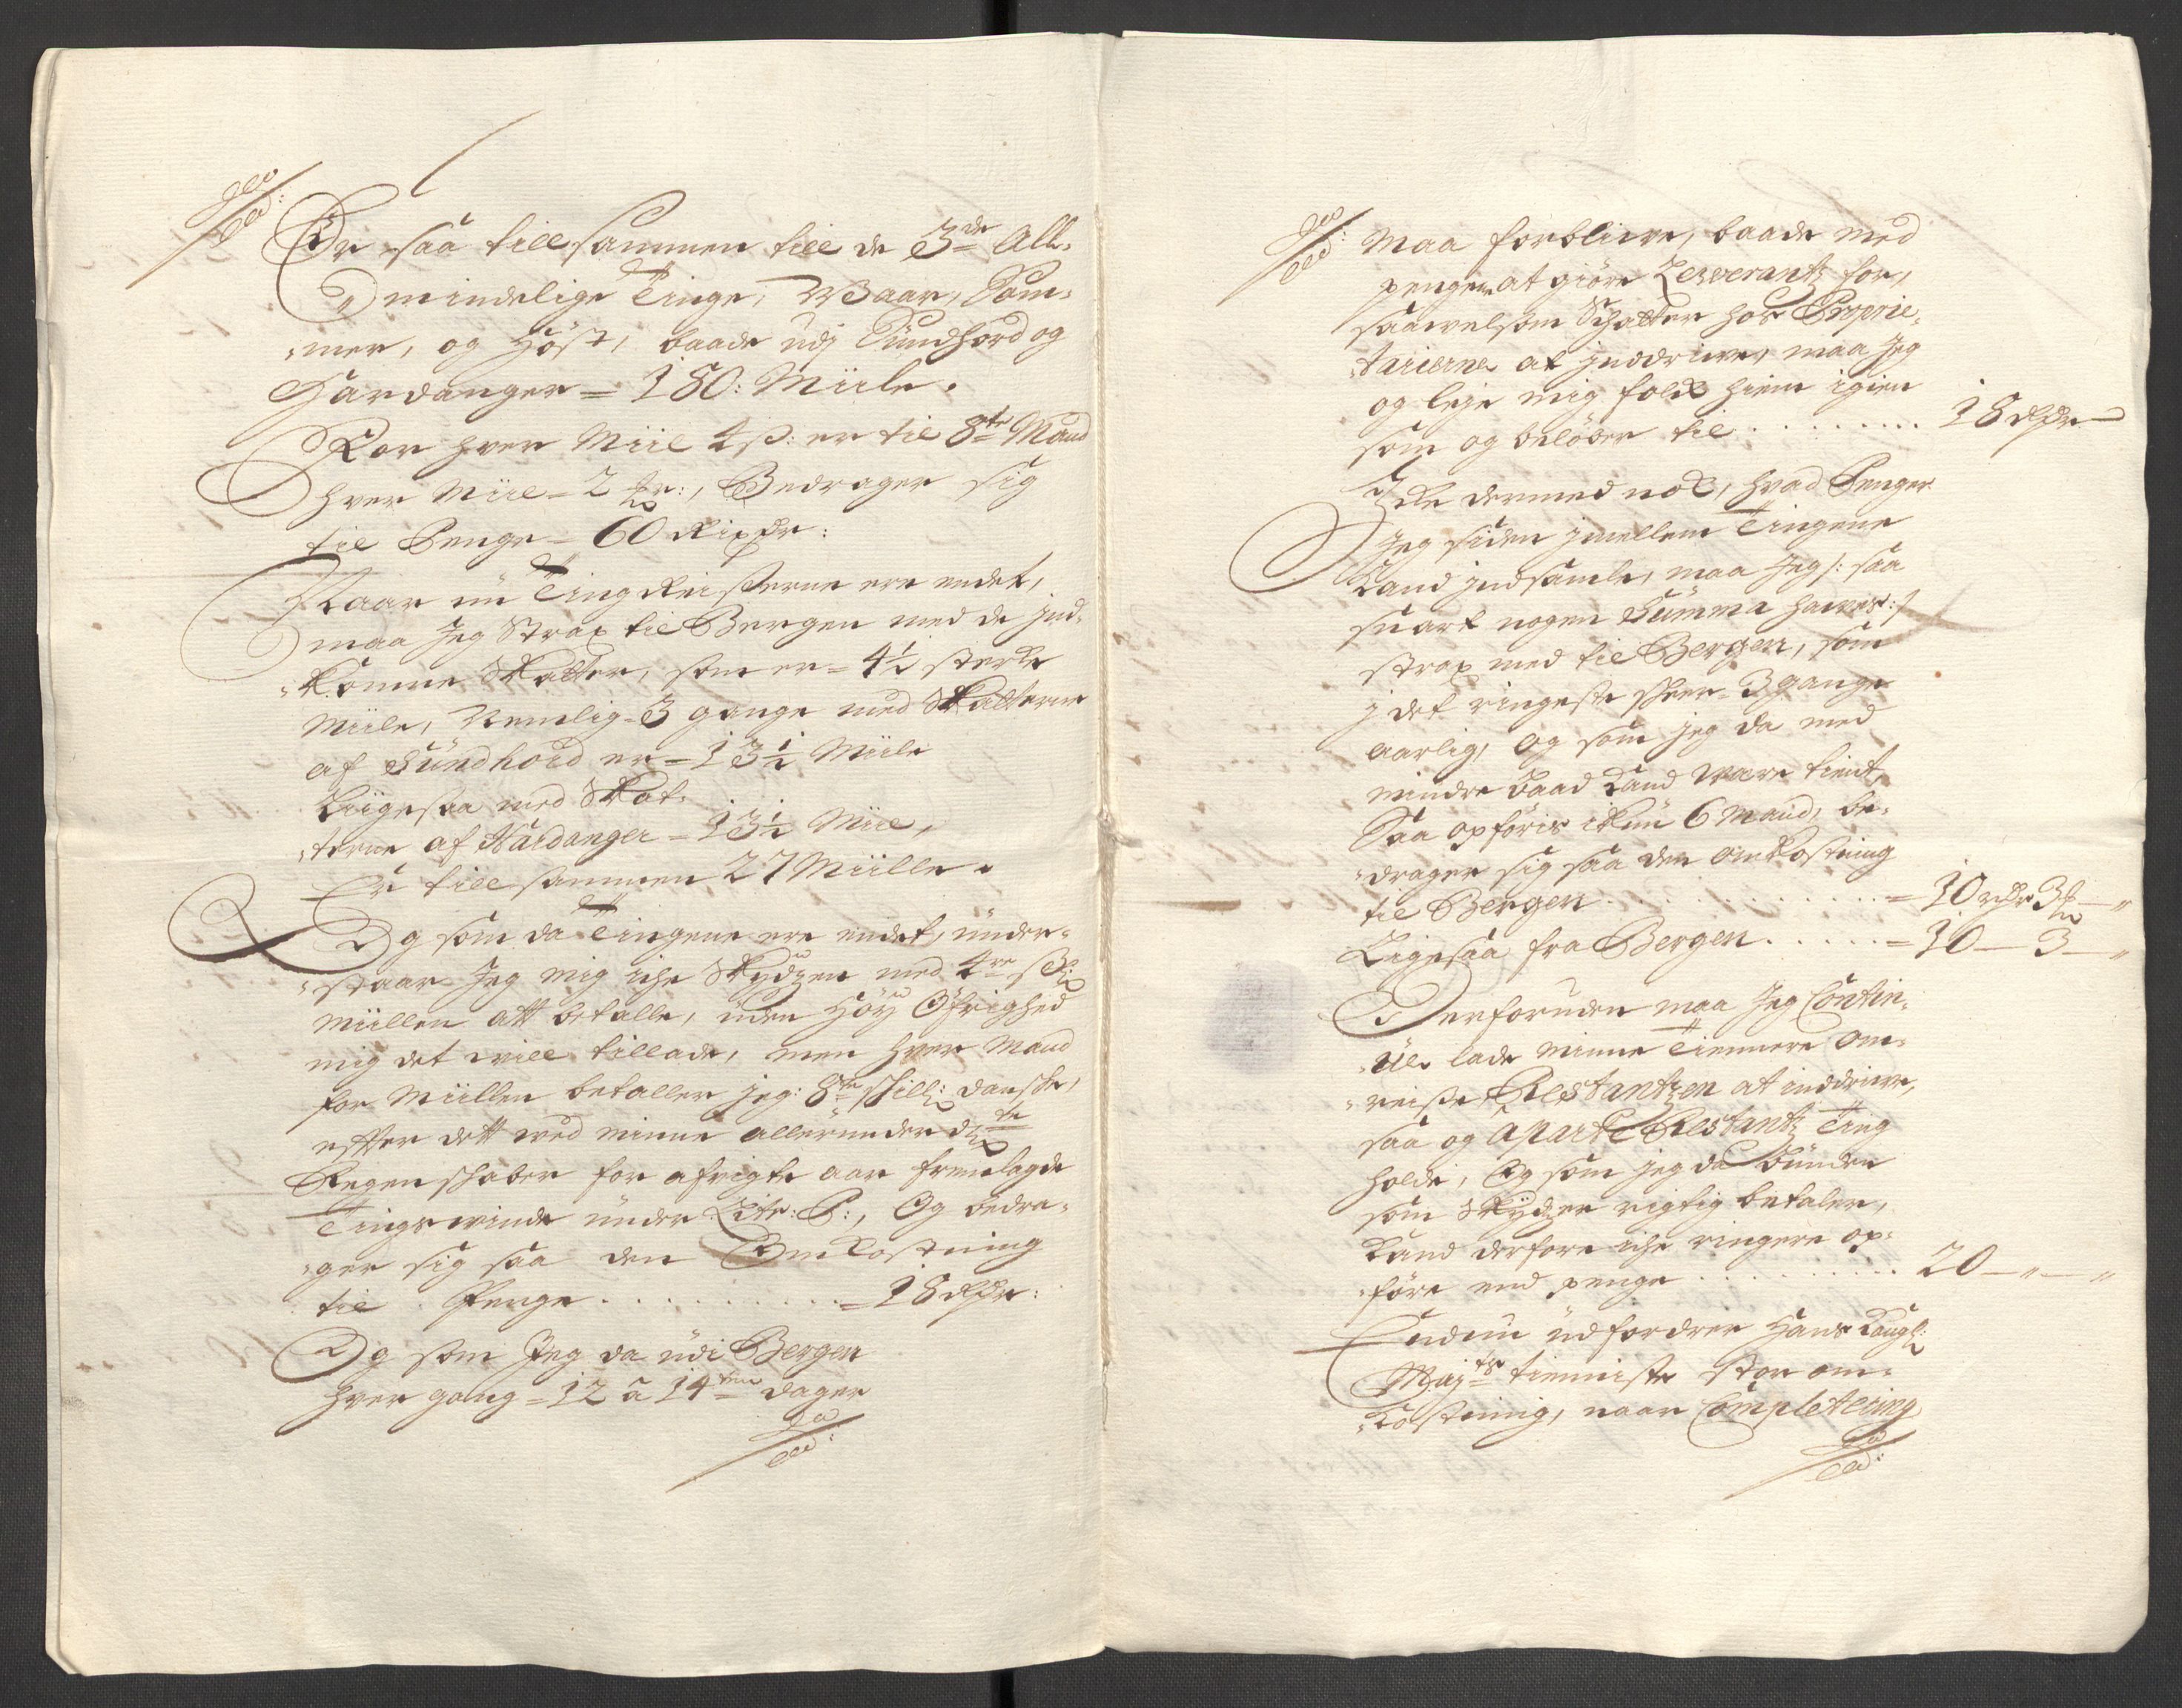 Er saa tillsammen till de 3de All-
mindelige Tinge, Waar, Som-
mer, og Höst, baade udj Sundhord og
Hardanger = 180: Miile.
For hver Miil 4 s: er til 8te Mand
hver Miil = 2 mk:, Bedrager sig
til Penge = 60 Rixdr:
Naar nu Ting Reiserne ere endet,
maa Jeg Strax til Bergen med de ind-
komne Skatter, som er = 4½ sterke
Miile, Nemlig = 3 gange med Skatterne
af Sundhord er = 13½ Miile
Liigesaa med Skat-
terne af Hardanger = 13½ Miil,
Er tillsammen 27 Miille.
Og som da Tingene ere endet, under-
staar Jeg mig iche Skydzen med 4re s:
Miillen att betalle, uden Höy Öfrighed
mig det will tillade, men hver Mand
for Miillen betaller jeg: 8te skill: danske,
effter dett wed minne allerunderd:te
Regenskaber for afvigte aar fremlagde
Tingswinde under Litr: P:, Og bedra-
ger sig saa den Omkostning
til Penge . . . . . . . . . = 18 Rdr:
Og som Jeg da udi Bergen
hver gang = 12 à 14ten dager
Maa forblive, baade med
pengene at giöre Leverantz for,
saavelsom Schatter hos Proprie-
tarierne at inddrive, maa Jeg
og leje mig folk hiem igien
som og belöber til . . . . . . . 18 Rdr
Icke dermed nok, hvad Penger
Jeg siden jmellem Tingene
kand indsamle, maa Jeg /: saa
snart nogen Summa haves :/
strax med til Bergen, som
i det ringeste skeer = 3 gange
aarlig, og som jeg da med
mindre Baad kand være tient,
Saa opföris ikkun 6 Mand, be-
drager sig saa den omkostning
til Bergen . . . . . . . . = 10 rdr 3 mk — „
Ligesaa fra Bergen . . . . . = 10 — 3 — „
Derforuden maa Jeg Contin-
uel lade minne Tiennere om-
reise Restantzen at inddrive,
saa og Aparte Restantz Ting
holde, Og som jeg da bunden
som Skydzer rigtig betaler,
kand derfore iche ringere op-
före end penge . . . . . . . 20 — „ — „
Endnu udfordrer Hans Kongl:
Majts tienniste stor om-
kostning, naar Completering